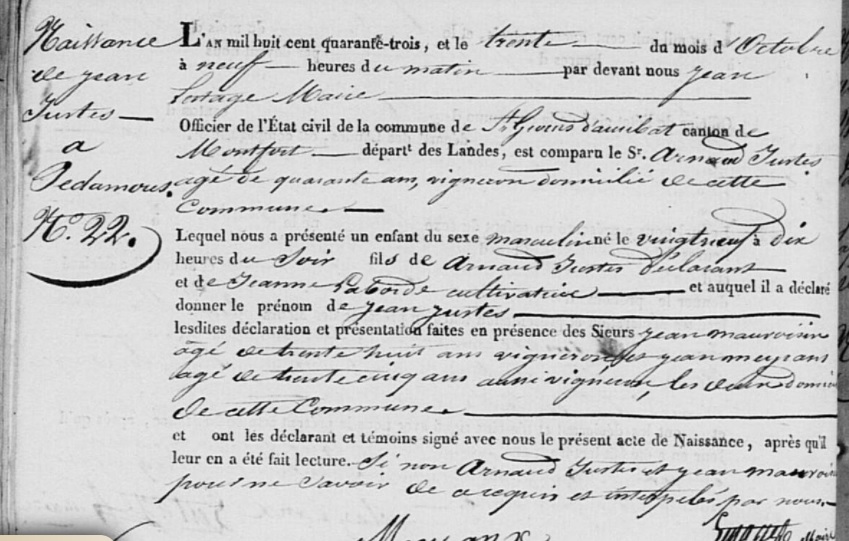 Naissance
de jean
Justes
a
Pedamous.
N.º 22.
L'AN mil huit cent quarante-trois, et le trente du mois d'Octobre
à neuf heures du matin par devant nous jean
Maire
Officier de l'État civil de la commune de St Geours d'auribat canton de
Montfort départ.t des Landes, est comparu le S.r Arnaud Justes
agé de quarante ans, vigneron domicilié de cette
Commune.
Lequel nous a présenté un enfant du sexe masculin né le vingt neuf à dix
heures du Soir fils de Arnaud Justes déclarant
et de Jeanne Laborde cultivatrice et auquel il a déclaré
donner le prénom de jean justes
lesdites déclaration et présentation faites en présence des Sieurs jean mauvoisin
agé de trente huit ans vigneron, et jean meysans
agé de trente cinq ans aussi vigneron, les deux domici
de cette Commune.
et ont les déclarant et témoins signé avec nous le présent acte de Naissance, après qu'il
leur en a été fait lecture. Si non Arnaud Justes et jean mauvoisin
pour ne Savoir de ce requis et interpelés par nous.
Maire